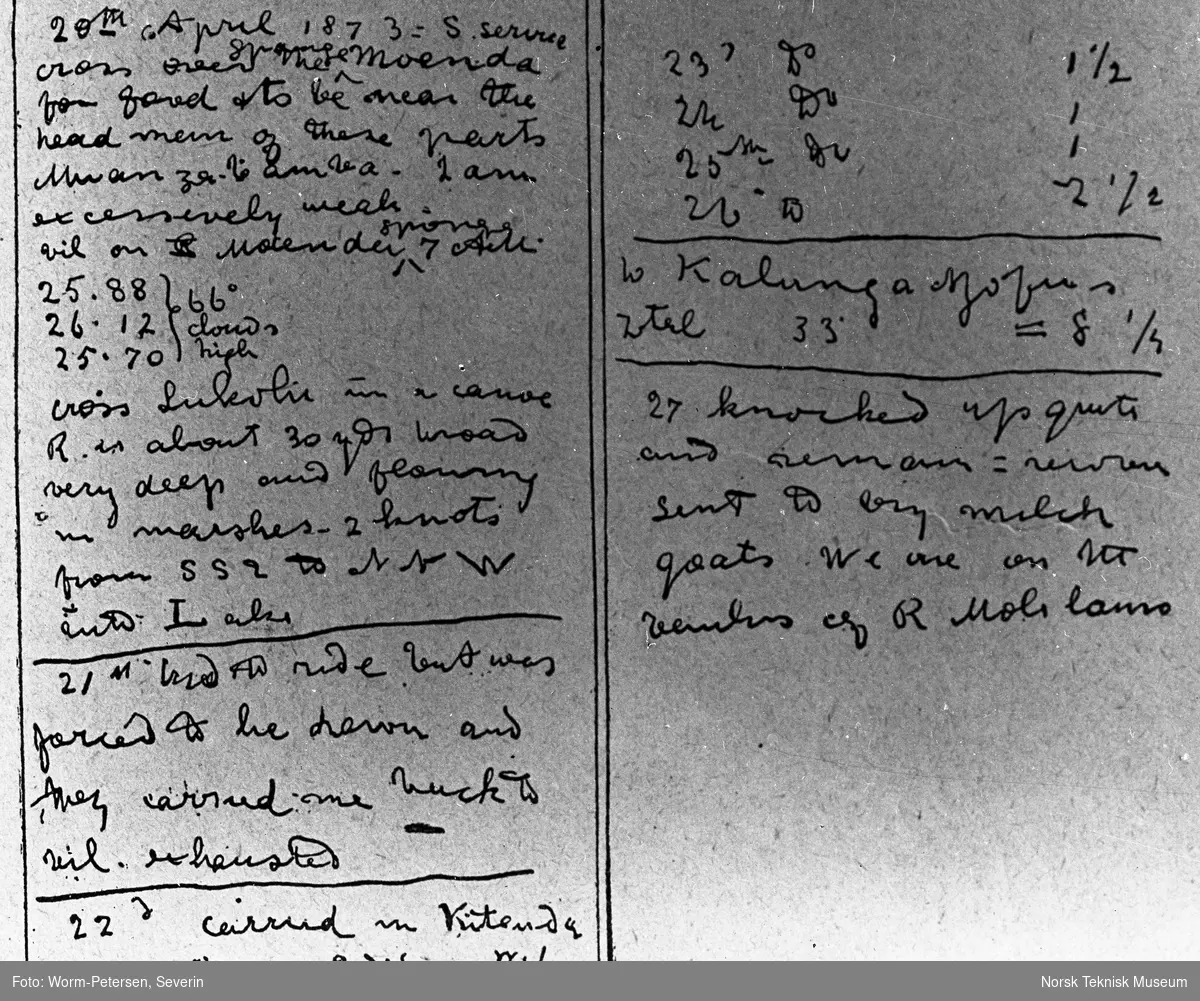 20th April 1873 = S. service
cross over the sponge Moenda
for food & to be near the
head men of these parts
Muanzabamba. I am
excessively weak
vil on Moenda sponge 7 AM.
25.88
26.12
25.70
66°
clouds
high
cross Lukolu in a canoe
R. is about 30 yds broad
very deep and flowing
in marshes - 2 knots
from SSE to NNW
into Lake
21st tried to ride but was
forced to lie down and
they carried me back to
vil. exhausted
22d carried in Kitanda
23d Do 1 1/2
24 Do 1
25th Do 1
26 to 2 1/2
to Kalunganjofus
total 33 = 8 1/4
27 knocked up quite
and remain = recover
sent to buy milch
goats We are on the
banks of R Molilamo
Foto: Worm-Petersen, Severin
Norsk Teknisk Museum